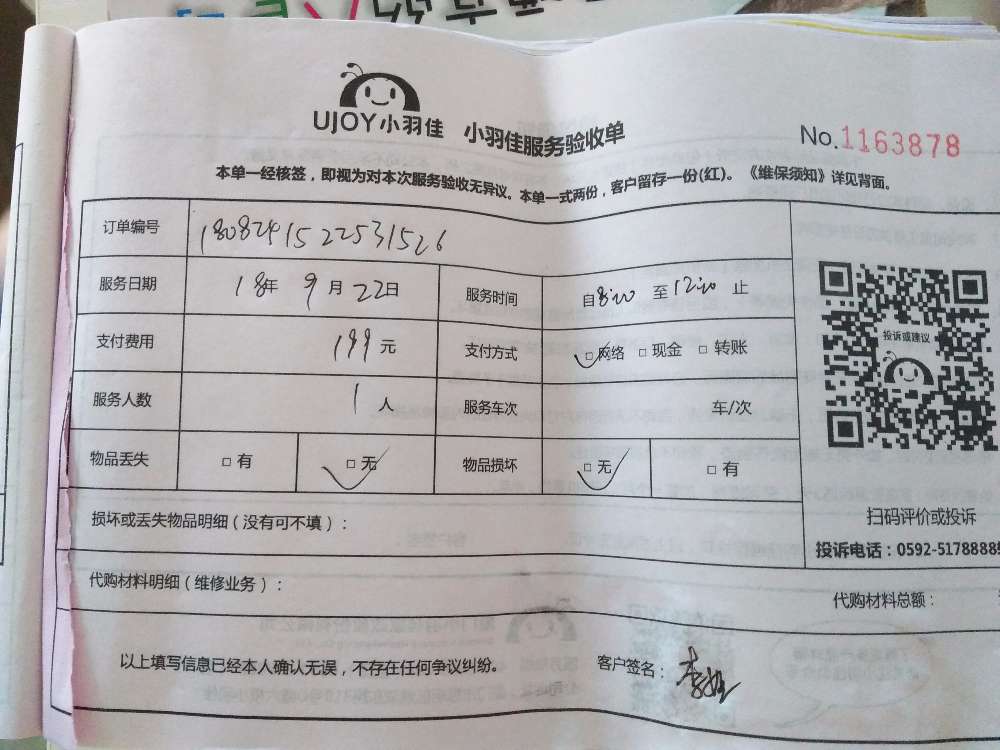 UJOY小羽佳 小羽佳服务验收单
No.1163878
本单一经核签，即视为对本次服务验收无异议。本单一式两份，客户留存一份(红)。《维保须知》详见背面。
订单编号 1808291522531526
服务日期 18年9月22日 服务时间 自8:00 至12:00 止
支付费用 199元 支付方式 □网络 □现金 □转账
服务人数 1人 服务车次 车/次
物品丢失 □有 □无 物品损坏 □无 □有
投诉或建议
扫码评价或投诉
投诉电话：0592-5178888
损坏或丢失物品明细（没有可不填）：
代购材料明细（维修业务）：
代购材料总额：
以上填写信息已经本人确认无误，不存在任何争议纠纷。 客户签名：